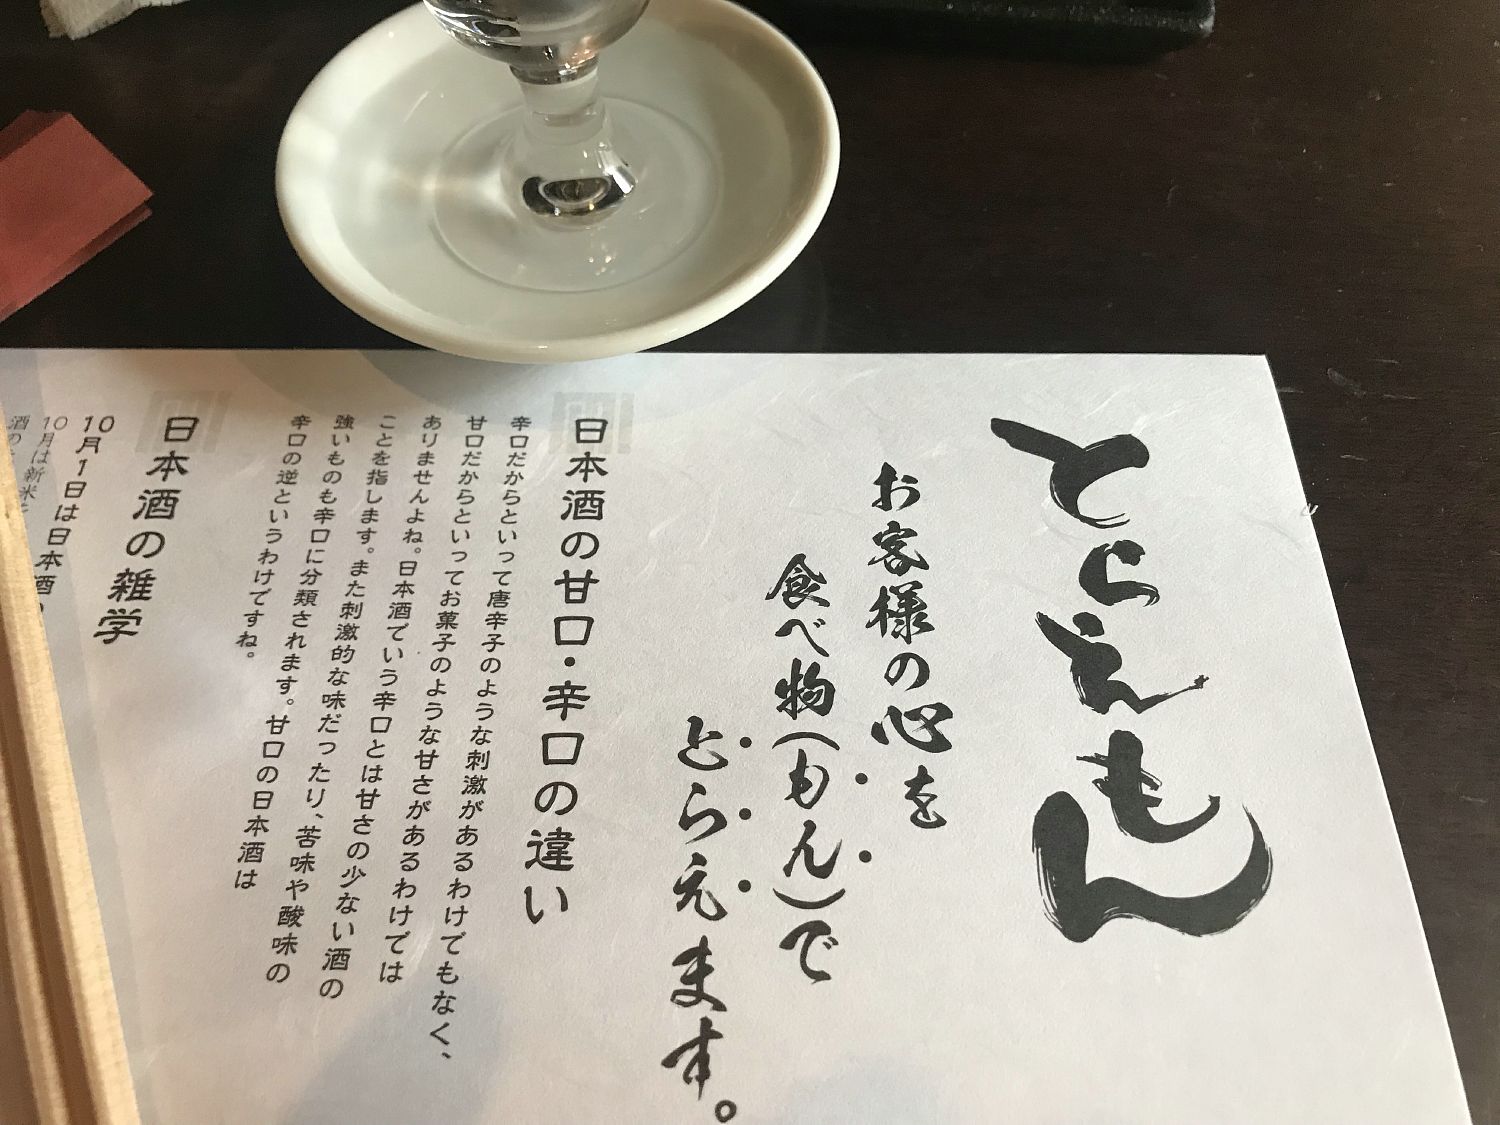 とらえもん
お客様の心を
食べ物(もん)で
とらえます。
日本酒の甘口・辛口の違い
辛口だからといって唐辛子のような刺激があるわけでもなく、
甘口だからといってお菓子のような甘さがあるわけでは
ありませんよね。日本酒でいう辛口とは甘さの少ない酒の
ことを指します。また刺激的な味だったり、苦味や酸味の
強いものも辛口に分類されます。甘口の日本酒は
辛口の逆というわけですね。
日本酒の雑学
10月1日は日本酒
10月は新米
酒の